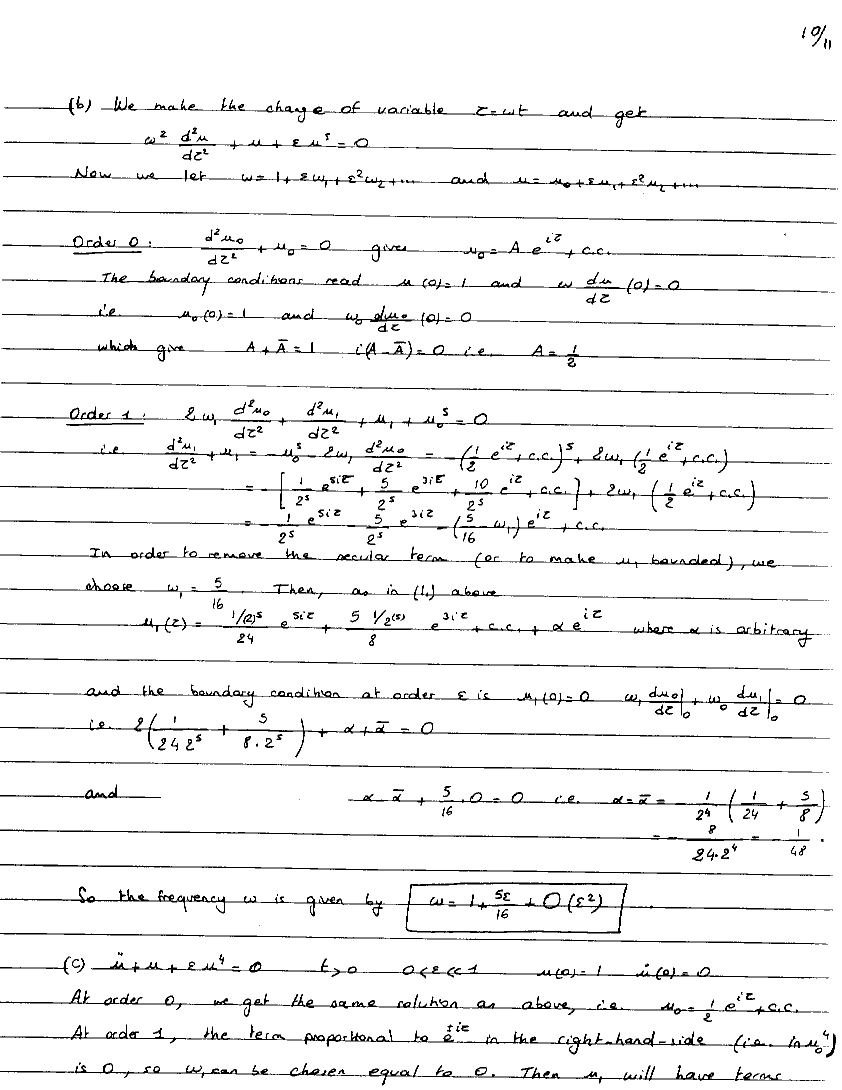 10/11
(b) We make the change of variable τ=ωt and get
ω² d²u/dτ² + u + εu⁵ = 0
Now we let ω = 1 + εω₁ + ε²ω₂ + ... and u = u₀ + εu₁ + ε²u₂ + ...
Order 0: d²u₀/dτ² + u₀ = 0 gives u₀ = A e^{iτ} + c.c.
The boundary conditions read u(0)=1 and ω du/dτ (0)=0
i.e. u₀(0)=1 and ω₀ du₀/dτ (0)=0
which give A + Ā = 1 i(A - Ā) = 0 i.e. A = 1/2
Order 1: 2ω₁ d²u₀/dτ² + d²u₁/dτ² + u₁ + u₀⁵ = 0
i.e. d²u₁/dτ² + u₁ = -u₀⁵ - 2ω₁ d²u₀/dτ² = -(1/2 e^{iτ} + c.c.)⁵ + 2ω₁ (1/2 e^{iτ} + c.c.)
= -[1/2⁵ e^{5iτ} + 5/2⁵ e^{3iτ} + 10/2⁵ e^{iτ} + c.c.] + 2ω₁ (1/2 e^{iτ} + c.c.)
= -1/2⁵ e^{5iτ} - 5/2⁵ e^{3iτ} - (5/16 - ω₁) e^{iτ} + c.c.
In order to remove the secular term (or to make u₁ bounded), we
choose ω₁ = 5/16. Then, as in (1.) above
u₁(τ) = 1/(2)⁵/24 e^{5iτ} + 5 1/2(5)/8 e^{3iτ} + c.c. + α e^{iτ} where α is arbitrary
and the boundary condition at order ε is u₁(0)=0 ω₁ du₀/dτ|₀ + ω₀ du₁/dτ|₀ = 0
i.e. 2(1/24 2⁵ + 5/8·2⁵) + α + ᾱ = 0
and α - ᾱ + 5/16 · 0 = 0 i.e. α = ᾱ = -1/2⁴ (1/24 + 5/8)
= -8/24·2⁴ = -1/48.
So the frequency ω is given by ω = 1 + 5ε/16 + O(ε²).
(c) ü + u + εu⁴ = 0 t>0 0<ε<<1 u(0)=1 u̇(0)=0
At order 0, we get the same solution as above, i.e. u₀ = 1/2 e^{iτ} + c.c.
At order 1, the term proportional to e^{±iτ} in the right-hand-side (i.e. in u₀⁴)
is 0, so ω₁ can be chosen equal to 0. Then u₁ will have terms